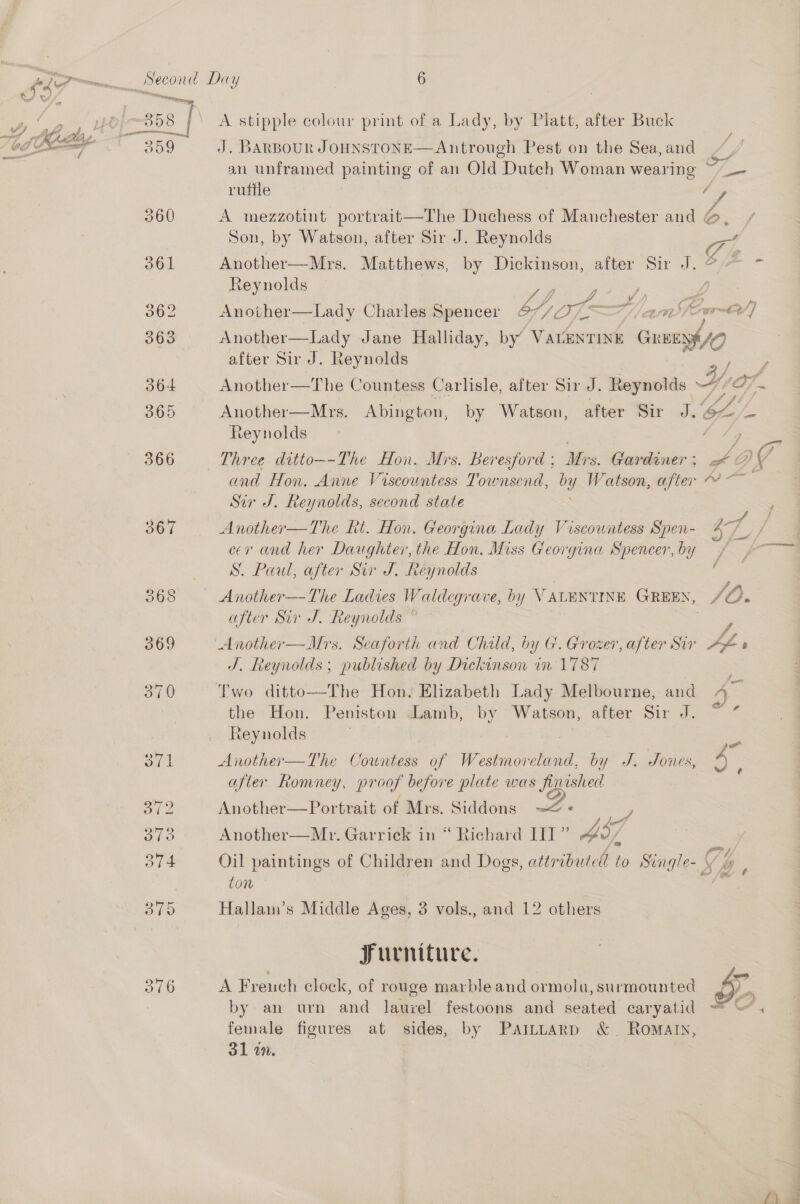 Second Day 6
358 A stipple colour print of a Lady, by Platt, after Buck
359 J. BARBOUR JOHNSTONE—Antrough Pest on the Sea, and
an unframed painting of an Old Dutch Woman wearing
ruffle
360 A mezzotint portrait—The Duchess of Manchester and
Son, by Watson, after Sir J. Reynolds
361 Another—Mrs. Matthews, by Dickinson, after Sir J.
Reynolds
362 Another—Lady Charles Spencer
363 Another—Lady Jane Halliday, by VALENTINE GREEN,
after Sir J. Reynolds
364 Another—The Countess Carlisle, after Sir J. Reynolds
365 Another—Mrs. Abington, by Watson, after Sir J.
Reynolds
366 Three ditto--The Hon. Mrs. Beresford; Mrs. Gardiner;
and Hon. Anne Viscountess Townsend, by Watson, after
Sir J. Reynolds, second state
367 Another—The Rt. Hon. Georgina Lady Viscountess Spen-
cer and her Daughter, the Hon. Miss Georgina Spencer, by
S. Paul, after Sir J. Reynolds
368 Another—The Ladies Waldegrave, by VALENTINE GREEN, 10.
after Sir J. Reynolds
369 Another—Mrs. Seaforth and Child, by G. Grozer, after Sir
J. Reynolds; published by Dickinson in 1787
370 Two ditto—The Hon. Elizabeth Lady Melbourne, and
the Hon. Peniston Lamb, by Watson, after Sir J.
Reynolds
371 Another—The Countess of Westmoreland, by J. Jones,
after Romney, proof before plate was finished
372 Another—Portrait of Mrs. Siddons
373 Another—Mr. Garrick in “Richard III”
374 Oil paintings of Children and Dogs, attributed to Single-
ton
375 Hallam's Middle Ages, 3 vols., and 12 others
Furniture.
376 A French clock, of rouge marble and ormolu, surmounted
by an urn and laurel festoons and seated caryatid
female figures at sides, by PAILLARD & ROMAIN,
31 in.